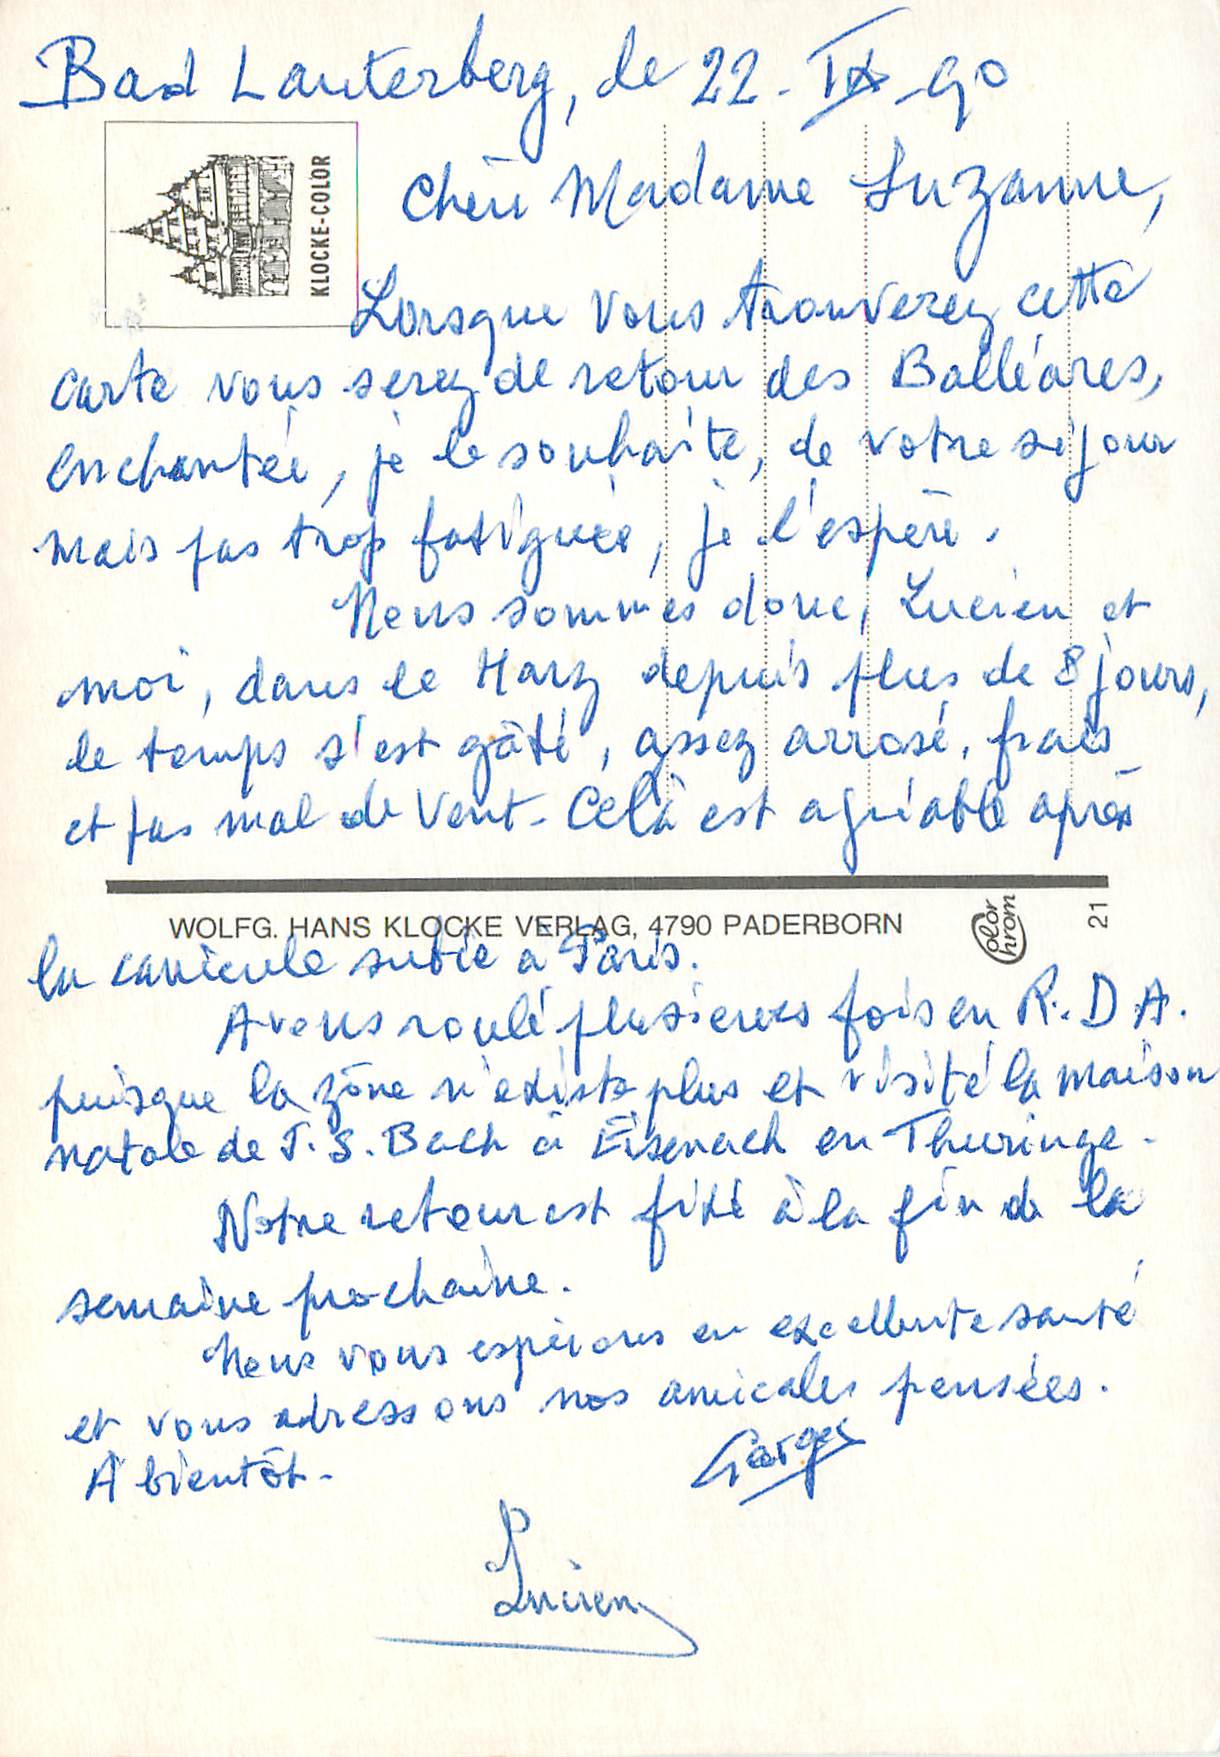 Bad Lauterberg, le 22. IX. 90
KLOCKE-COLOR
Chère Madame Suzanne,
Lorsque vous trouverez cette
carte vous serez de retour des Balléares,
enchantée, je le souhaite, de votre séjour
mais pas trop fatiguée, je l'espère.
Nous sommes donc, Lucien et
moi, dans le Harz depuis plus de 8 jours,
le temps s'est gâté, assez arrosé, frais
et pas mal de vent. Celà est agréable après
WOLFG. HANS KLOCKE VERLAG, 4790 PADERBORN
color chrom
21
la canicule subie à Paris.
Avons roulé plusieurs fois en R.D.A.
puisque la zône n'existe plus et visité la maison
natale de J. S. Bach à Eisenach en Thuringe.
Notre retour est fixé à la fin de la
semaine prochaine.
Nous vous espérons en excellente santé
et vous adressons nos amicales pensées.
A bientôt.
Georges
Lucien